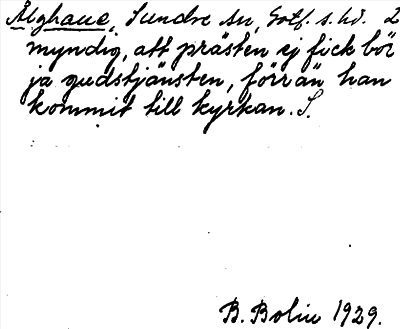 Älghaue, Sundre sn, Gotl. s. hd. 2
myndig, att prästen ej fick bör
ja gudstjänsten, förrän han
kommit till kyrkan. S.
B. Bolin 1929.